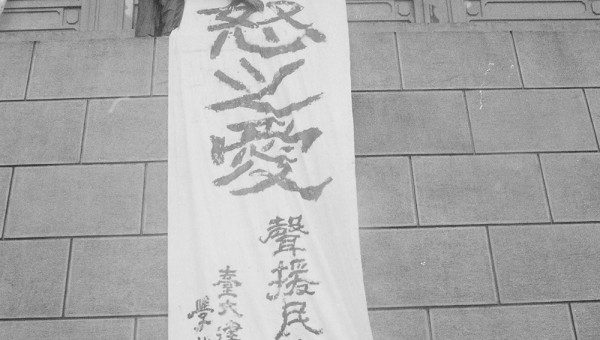 怒之愛
聲援民
臺大
學